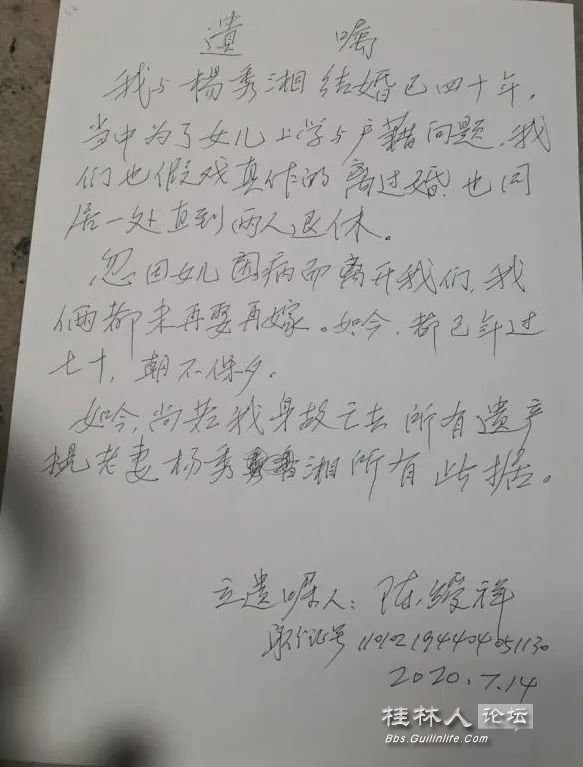 遺 嘱
我与楊秀湘结婚已四十年，
当中为了女儿上学与户藉问题，我
们也假戏真作的离过婚，也同
居一处直到两人退休。
忽因女儿因病而离开我们，我
俩都未再娶再嫁。如今，都已年过
七十，朝不保夕。
如今，尚若我身故亡去所有遺产
归老妻杨秀湘所有 此据。
立遺嘱人：陈绶祥
身份证号 110102194404051130
2020.7.14
桂林人论坛
Bbs.Guilinlife.Com